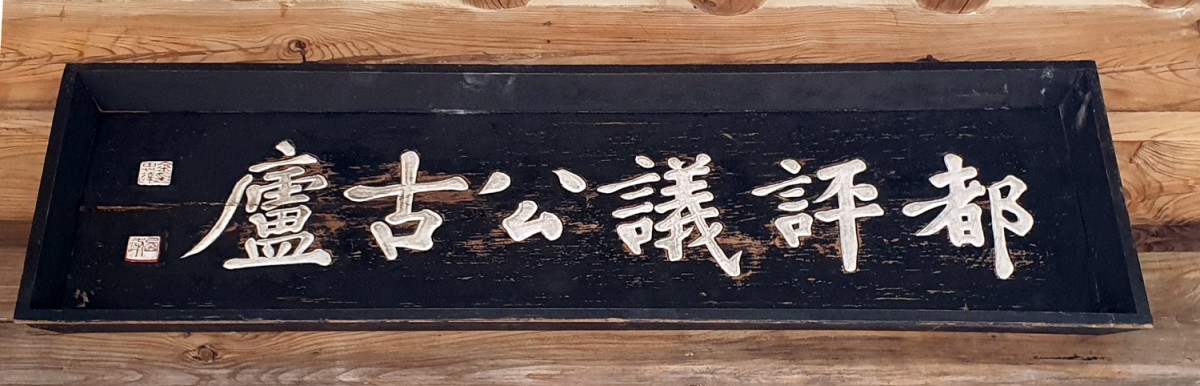 都評議公古廬